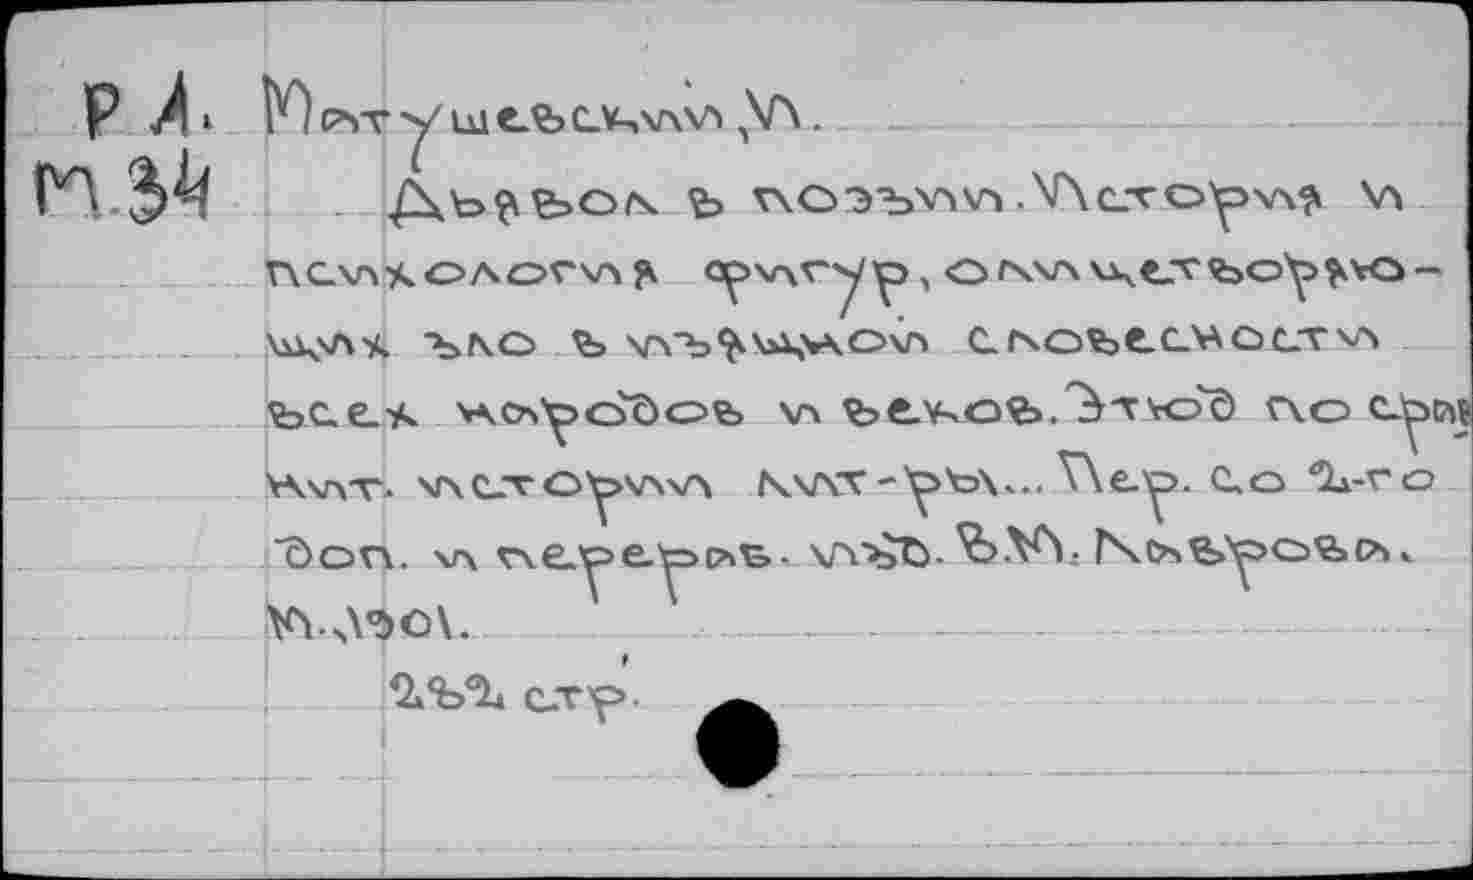 РА. Матушевский, И.
М34 Дьявол в поэзии. История и
психология фигур, олицетворяю-
щих зло в изящной словесности
всех народов и веков. Этюд по срав
нит. истории лит-ры... Пер. со 2-го
доп. и перераб. изд. В.М. Лаврова.
М., 1901.
232 стр.